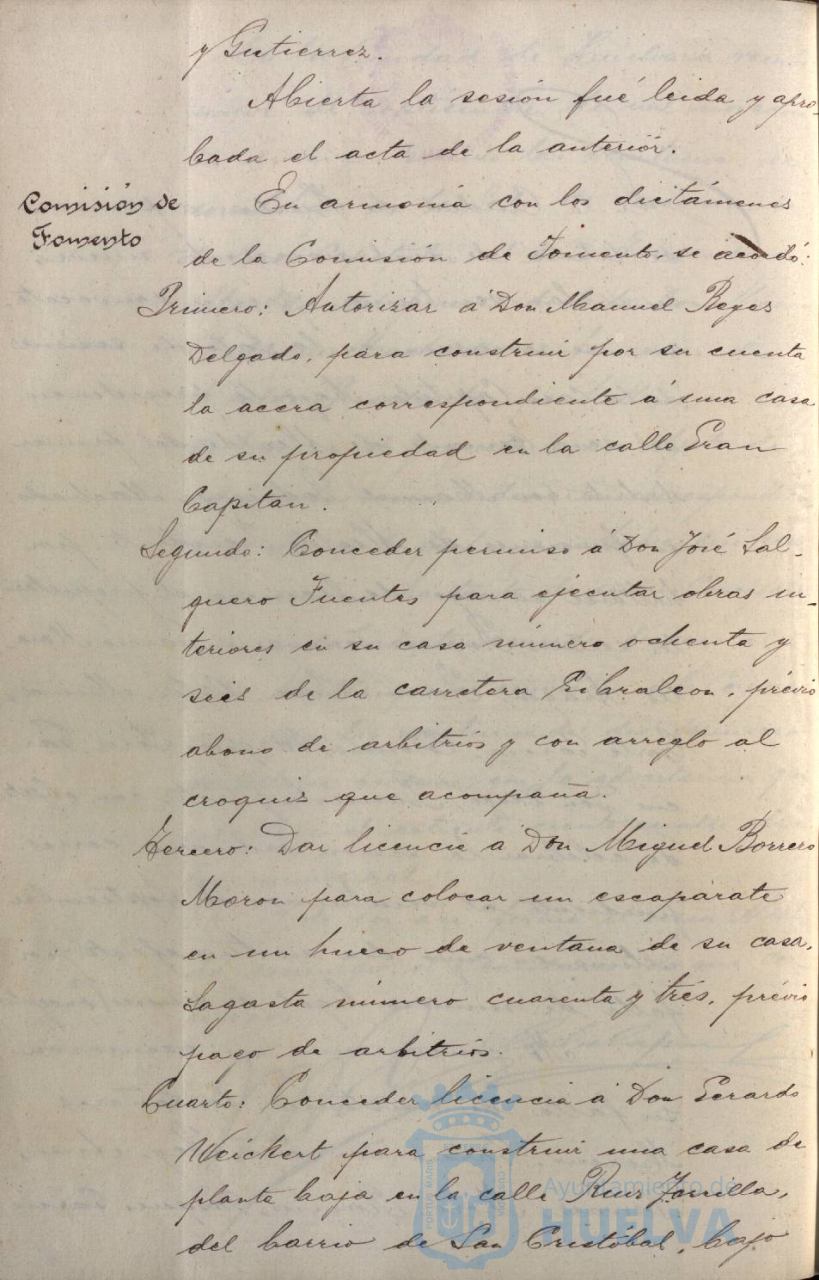 y Gutierrez.
Abierta la sesión fué leida y apro-
bada el acta de la anteriór.
Comisión de
Fomento
En armonía con los dictámenes
de la Comisión de Fomento, se acordó:
Primero: Autorizar á Don Manuel Reyes
Delgado, para construir por su cuenta
la acera correspondiente á una casa
de su propiedad en la calle Gran
Capitan.
Segundo: Conceder permiso á Don José Sal-
guero Fuentes para ejecutar obras in-
teriores en su casa número ochenta y
seis de la carretera Gibraleon, prévio
abono de arbitrios y con arreglo al
croquis que acompaña.
Tercero: Dar licencia á Don Miguel Borrero
Moron para colocar un escaparate
en un hueco de ventana de su casa,
Sagasta número cuarenta y trés, prévio
pago de arbitrios.
Cuarto: Conceder licencia á Don Gerardo
Weickert para construir una casa de
planta baja en la calle Ruiz Zorrilla,
del barrio de San Cristóbal, bajo
Ayuntamiento de
HUELVA